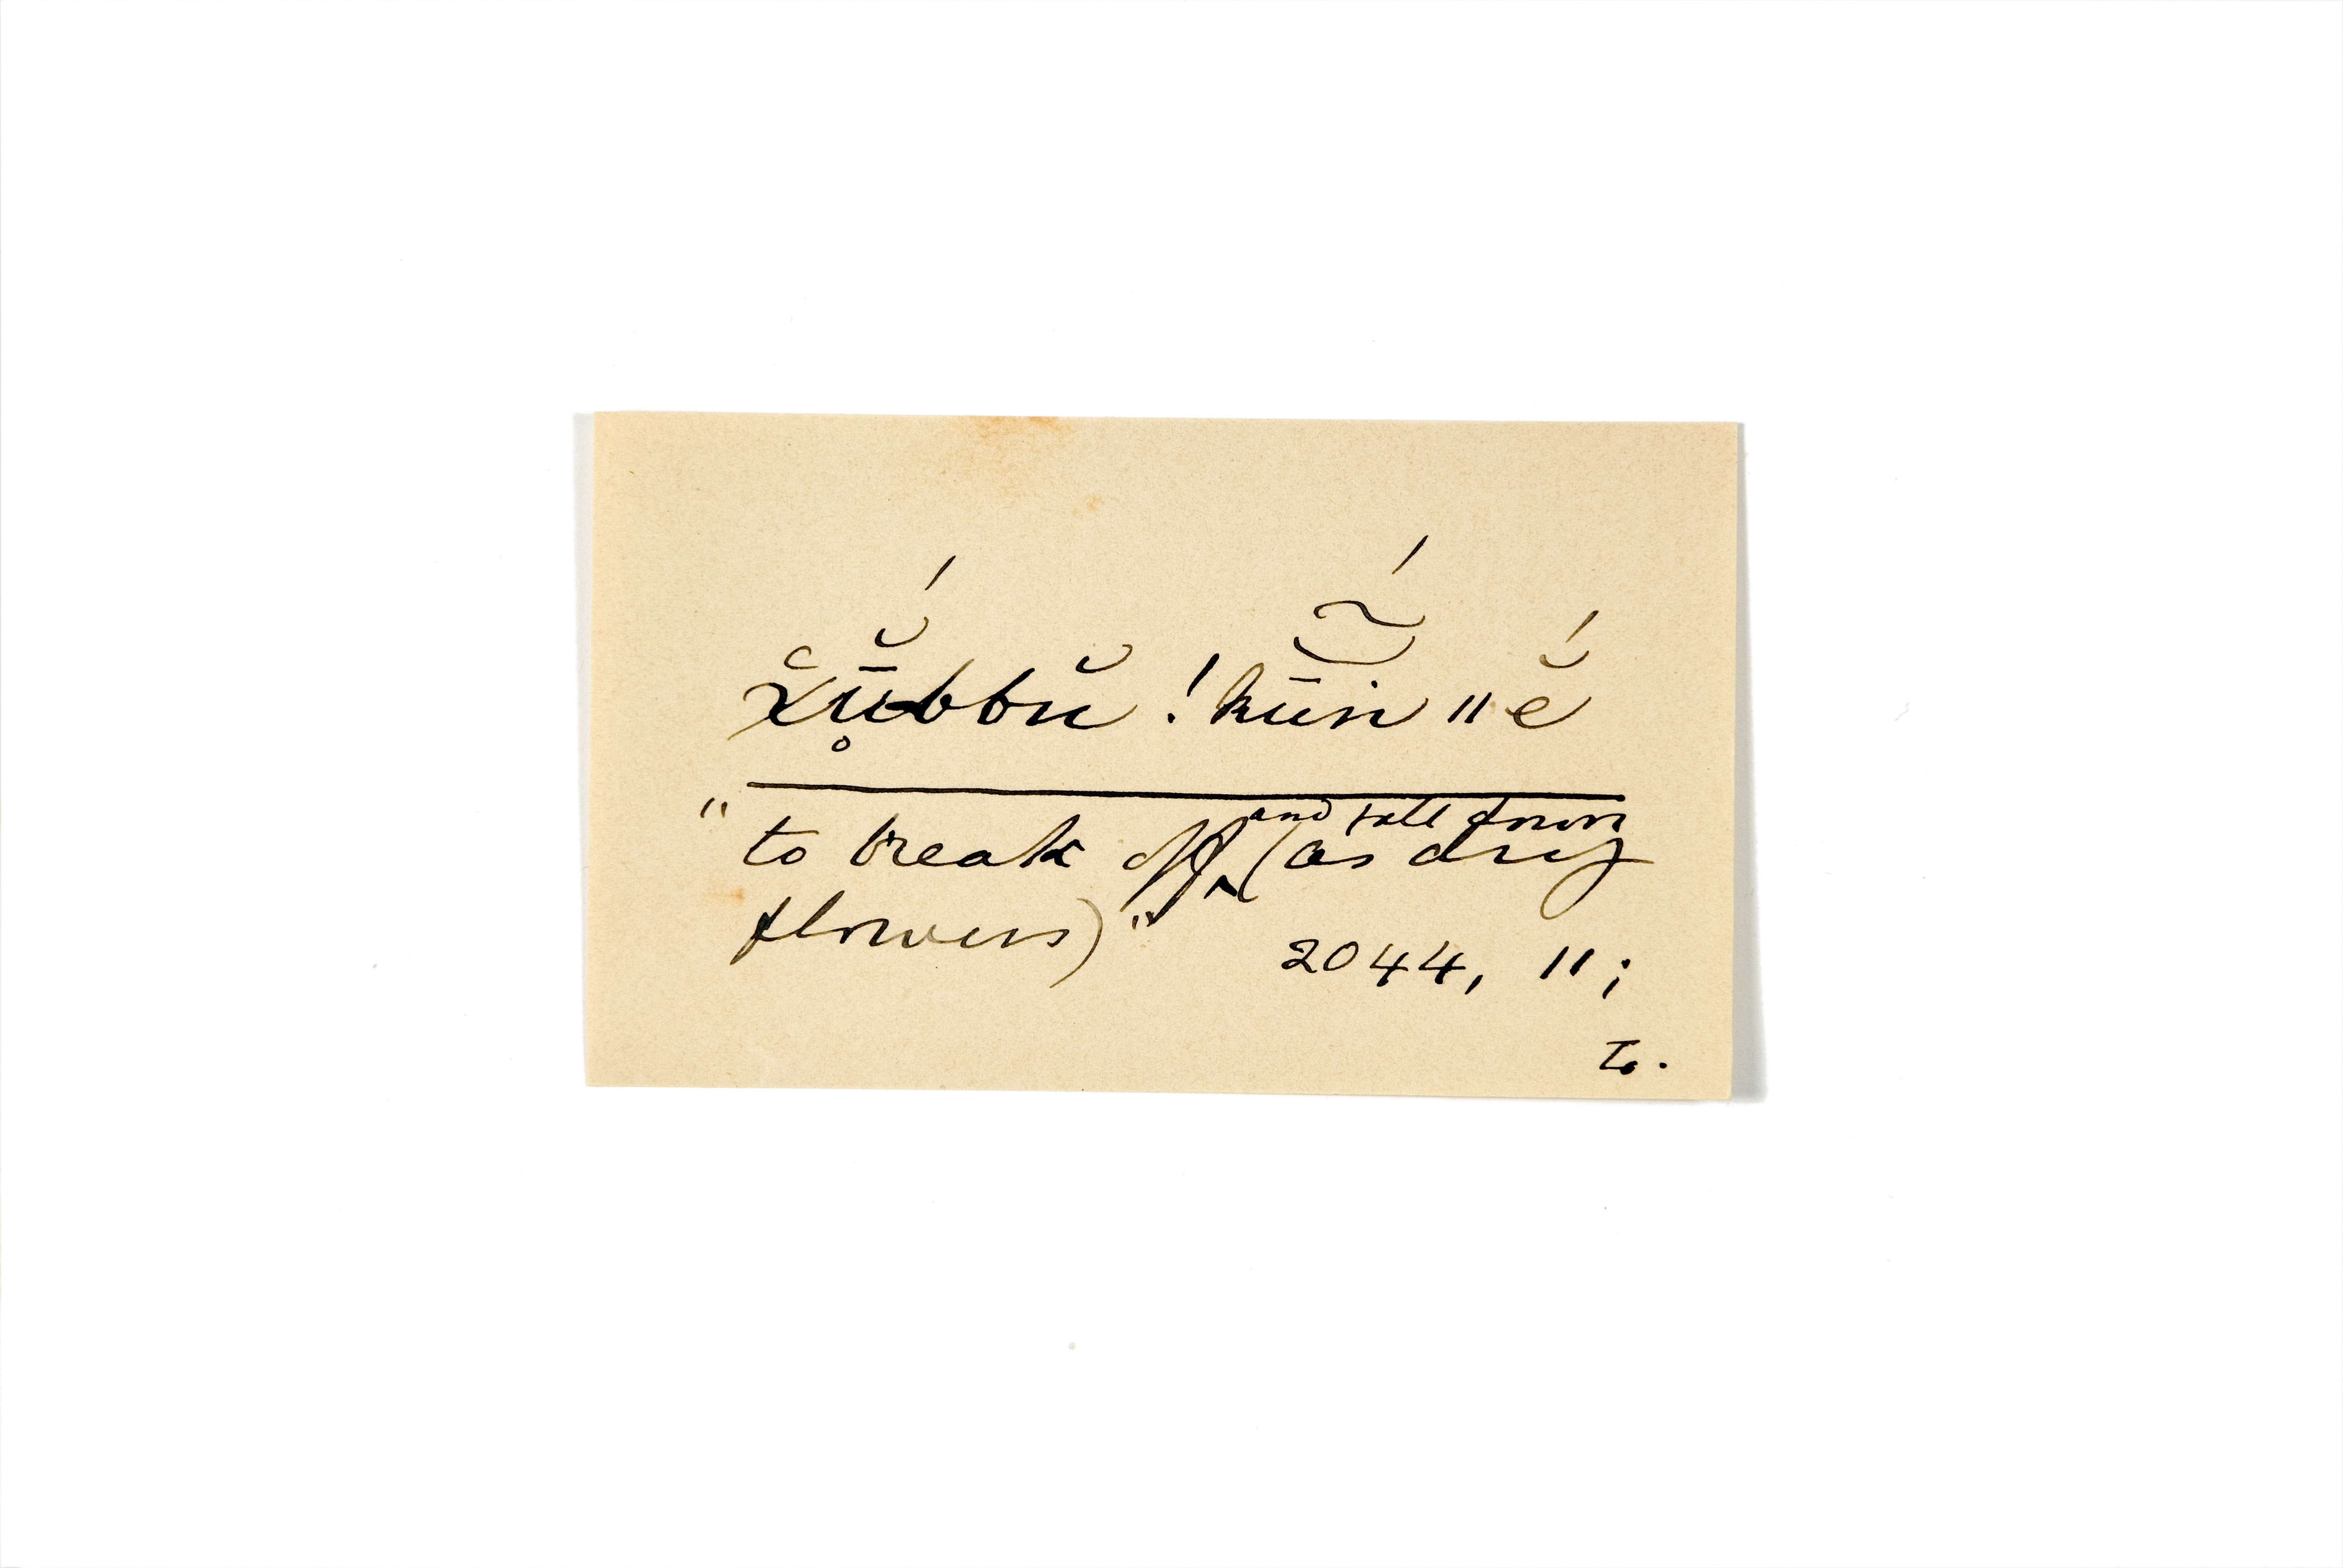 χŭ̥̄́bbŭ !kū̆̃́in ǁĕ́
"to break off ^ and fall down (as dry
flowers)"
2044, 11;
to.